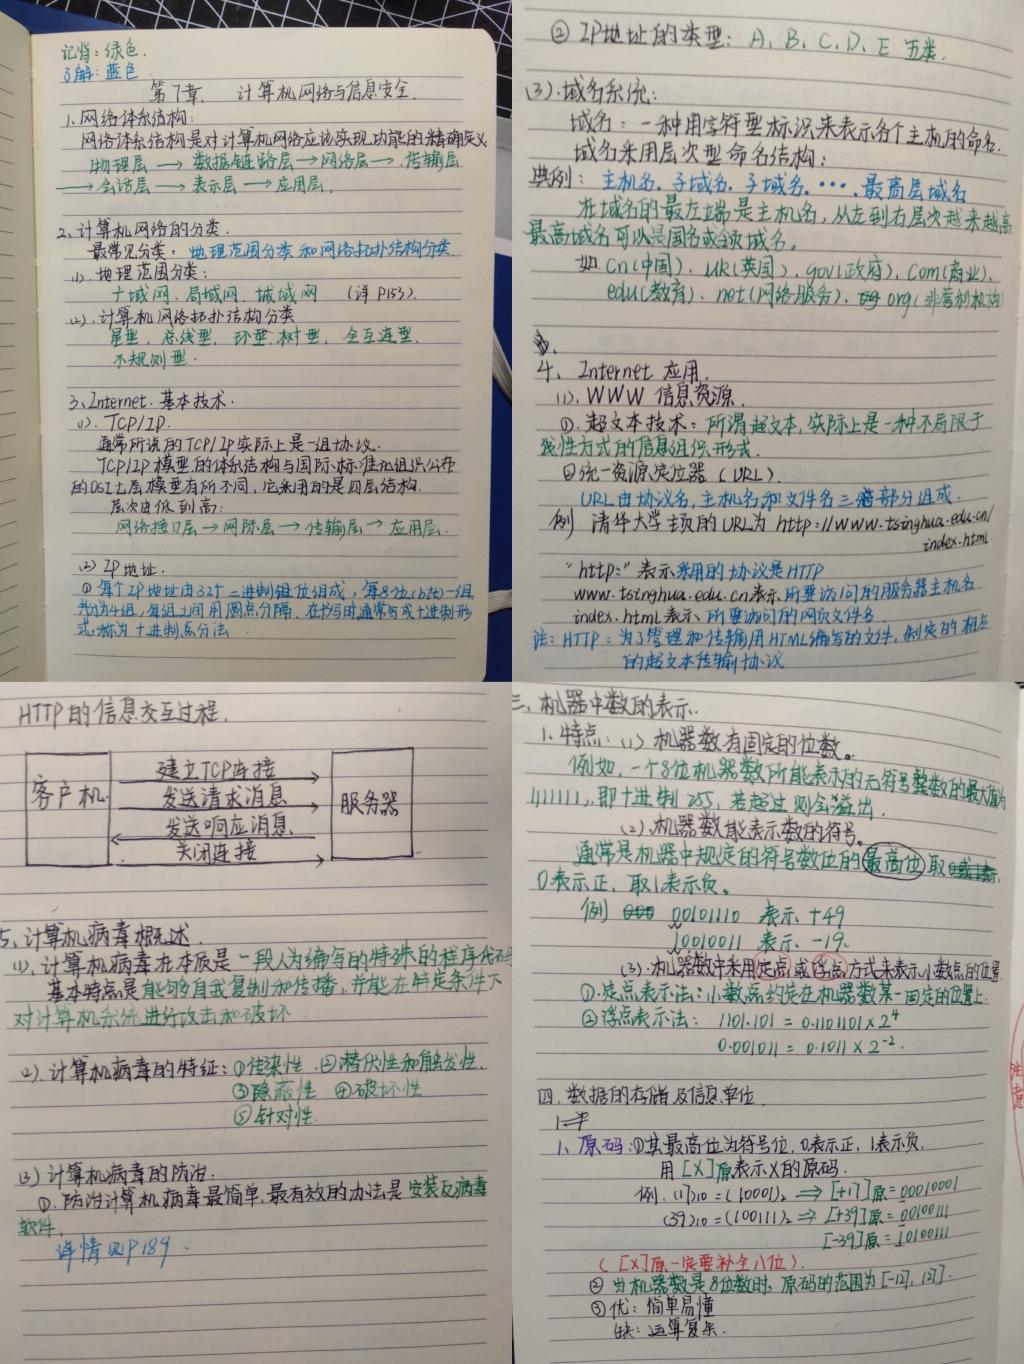 记背：绿色.
了解：蓝色.
第7章. 计算机网络与信息安全.
1.网络体系结构：
网络体系结构是对计算机网络应该实现功能的精确定义
物理层→数据链路层→网络层→传输层
→会话层→表示层→应用层.
2.计算机网络的分类.
最常见分类：地理范围分类和网络拓扑结构分类.
(1).地理范围分类：
广域网、局域网、城域网 (详P153).
(2).计算机网络拓扑结构分类
星型、总线型、环型、树型、全互连型、
不规则型.
3、Internet.基本技术.
(1).TCP/IP.
通常所说的TCP/IP实际上是一组协议.
TCP/IP模型的体系结构与国际标准化组织公布
的OSI七层模型有所不同，它采用的是四层结构.
层次由低到高：
网络接口层→网际层→传输层→应用层.
(2)IP地址.
①每个IP地址由32个二进制位组成，每8位(bit)一组，
共分为4组，每组之间用圆点分隔.在书写时通常写成十进制形
式，称为十进制点分法.
②IP地址的类型：A、B、C、D、E五类.
(3).域名系统：
域名：一种用字符型标识来表示各个主机的命名.
域名采用层次型命名结构：
典例：主机名.子域名.子域名.….最高层域名
在域名的最左端是主机名，从左到右层次越来越高
最高域名可以是国名或领域名。
如.cn(中国)、uk(英国)、gov(政府)、com(商业)、
edu(教育)、net(网络服务)、org(非营利机构)
4、Internet应用.
(1).WWW信息资源.
①.超文本技术：所谓超文本，实际上是一种不局限于
线性方式的信息组织形式.
②统一资源定位器(URL)
URL由协议名，主机名和文件名三部分组成.
例 清华大学主页的URL为http://www.tsinghua.edu.cn/
index.html
"http:"表示采用的协议是HTTP
www.tsinghua.edu.cn表示所要访问的服务器主机名
index.html表示所要访问的网页文件名
注：HTTP：为了管理和传输用HTML编写的文件，制定的相应
的超文本传输协议
HTTP的信息交互过程.
客户机
建立TCP连接
发送请求消息
发送响应消息
关闭连接
服务器
5、计算机病毒概述.
(1)、计算机病毒在本质是一段人为编写的特殊的程序代码
基本特点是能够自我复制和传播，并能在特定条件下
对计算机系统进行攻击和破坏.
(2).计算机病毒的特征：①传染性.②潜伏性和触发性.
③隐蔽性 ④破坏性
⑤针对性.
(3)计算机病毒的防治：
①.防治计算机病毒最简单，最有效的办法是安装反病毒
软件.
详情见P189.
三、机器中数的表示.
1.特点：(1)机器数有固定的位数。
例如，一个8位机器数所能表示的无符号整数的最大值为
11111111,即十进制255，若超过则会溢出.
(2).机器数能表示数的符号。
通常是机器中规定的符号数位的最高位取
0表示正，取1表示负。
例 00101110 表示 +49
10010011 表示 -19.
(3).机器数中采用定点或浮点方式来表示小数点的位置
①.定点表示法：小数点约定在机器数某一固定的位置上.
②浮点表示法：1101.101=0.1101101×2⁴
0.001011=0.1011×2⁻².
注意
四.数据的存储及信息单位.
1、原码：①其最高位为符号位，0表示正，1表示负.
用[X]原表示X的原码.
例.(17)₁₀=(10001)₂→[+17]原=00010001
(39)₁₀=(100111)₂→[+39]原=00100111
[-39]原=10100111
([X]原一定要补全八位).
②当机器数是8位数时，原码的范围为[-127,127].
③优：简单易懂
缺：运算复杂.